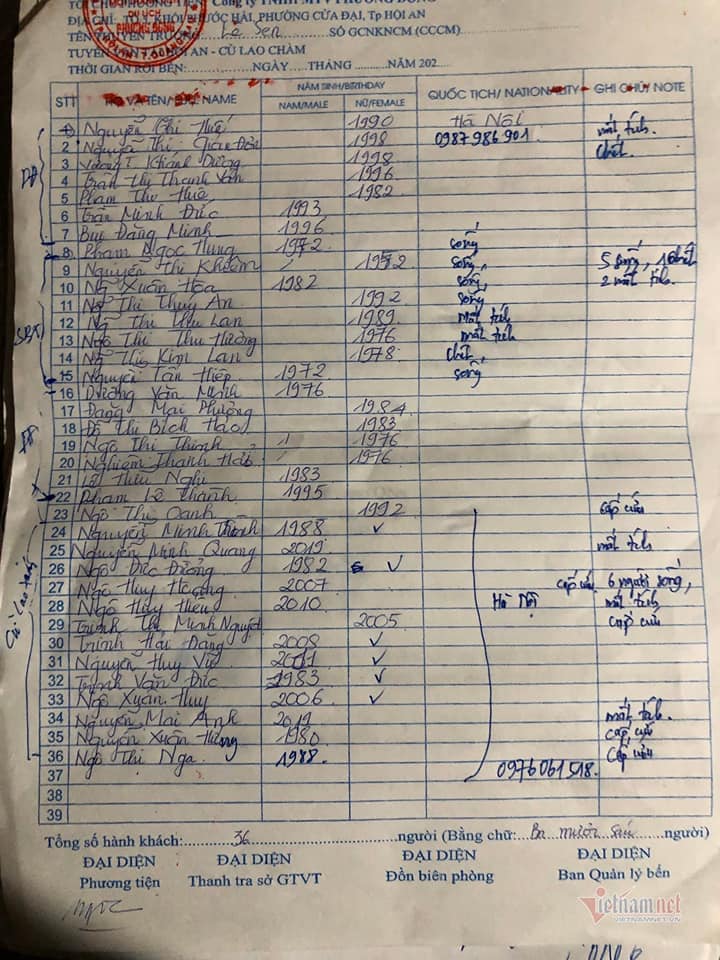 Công ty TNHH MTV PHƯƠNG ĐÔNG
ĐỊA CHỈ: TỔ 1 KHỐI PHƯỚC HẢI, PHƯỜNG CỬA ĐẠI, Tp HỘI AN
TÊN THUYỀN TRƯỞNG Lê Sen SỐ GCNKNCM (CCCM)
TUYẾN HỘI AN - CÙ LAO CHÀM
THỜI GIAN RỜI BẾN:..........NGÀY......THÁNG..........NĂM 202....
STT HỌ VÀ TÊN/ NAME NĂM SINH/BIRTHDAY QUỐC TỊCH/ NATIONALITY GHI CHÚ/ NOTE
NAM/MALE NỮ/FEMALE
1 Nguyễn Thị Huế 1990 Hà Nội mất tích.
2 Nguyễn Thị 1998 0987986901 chết.
3 Khánh Dương 1998
4 Trần Thị Thanh Vân 1996
5 Phạm Thu Huế 1982
6 Trần Minh Đức 1993
7 Bùi Đăng Minh 1996
8 Phạm Ngọc Hưng 1972 sống
9 Nguyễn Thị Khiêm 1952 sống, 5 sống, 1 chết
10 Ng Xuân Hòa 1982 sống, 2 mất tích.
11 Ngô Thị Thúy An 1992 sống
12 Ng Thị Thu Lan 1989 Mất tích
13 Ngô Thị Thu Hường 1976 mất tích
14 Ng Thị Kim Lan 1978 chết,
15 Nguyễn Tấn Hiệp 1972 sống
16 Dương Văn Minh 1976
17 Đặng Mai Phương 1984
18 Đỗ Thị Bích Hảo 1983
19 Ngô Thị Thịnh 1976
20 Nghiêm Thanh 1976
21 Lê Hữu Nghị 1983
22 Phạm Lê Thành 1995
23 Ngô Thị Oanh 1992 cấp cứu
24 Nguyễn Minh 1988 ✓
25 Nguyễn Minh Quang 2019 mất tích
26 Ngô Đức Dương 1982 ✓
27 Ngô Huy Hoàng 2007 cấp cứu 6 người sống,
28 Ngô Huy Hiếu 2010 Hà Nội mất tích
29 Trịnh Thị Minh Nguyệt 2005 cấp cứu
30 Trịnh Hải Đăng 2008 ✓
31 Nguyễn Huy Vũ 2011 ✓
32 Trịnh Văn Đức 1983 ✓
33 Ngô Xuân Huy 2006 ✓
34 Nguyễn Mai Anh 2019 mất tích.
35 Nguyễn Xuân 1980 cấp cứu
36 Ngô Thị Nga 1988 cấp cứu
37 0976061518.
38
39
Tổng số hành khách:..........36..........người (Bằng chữ: Ba mươi sáu người)
ĐẠI DIỆN ĐẠI DIỆN ĐẠI DIỆN ĐẠI DIỆN
Phương tiện Thanh tra sở GTVT Đồn biên phòng Ban Quản lý bến
vietnamnet
VIETNAMNET.VN